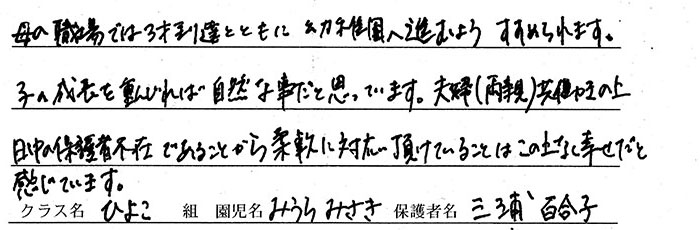 母の職場では3才到達とともに幼稚園へ進むよう すすめられます。
子の成長を重んじれば自然な事だと思っています。夫婦(両親)共働きの上
日中の保護者不在であることから柔軟に対応頂けていることはこの上なく幸せだと
感じています。
クラス名 ひよこ 組 園児名 みうら みさき 保護者名 三浦 百合子